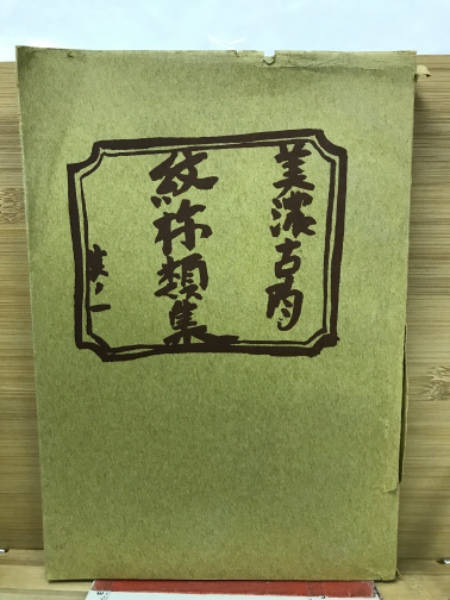 美濃古陶
紋様類集
其ノ一